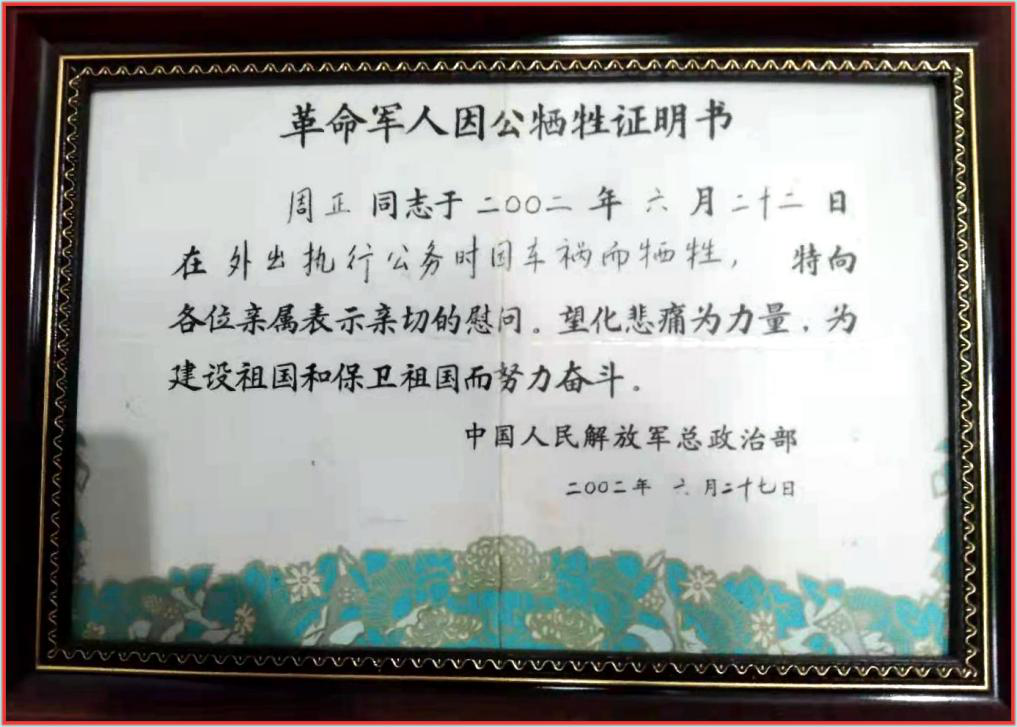 革命军人因公牺牲证明书
周正同志于二〇〇二年六月二十二日
在外出执行公务时因车祸而牺牲，特向
各位亲属表示亲切的慰问。望化悲痛为力量，为
建设祖国和保卫祖国而努力奋斗。
中国人民解放军总政治部
二〇〇二年六月二十七日